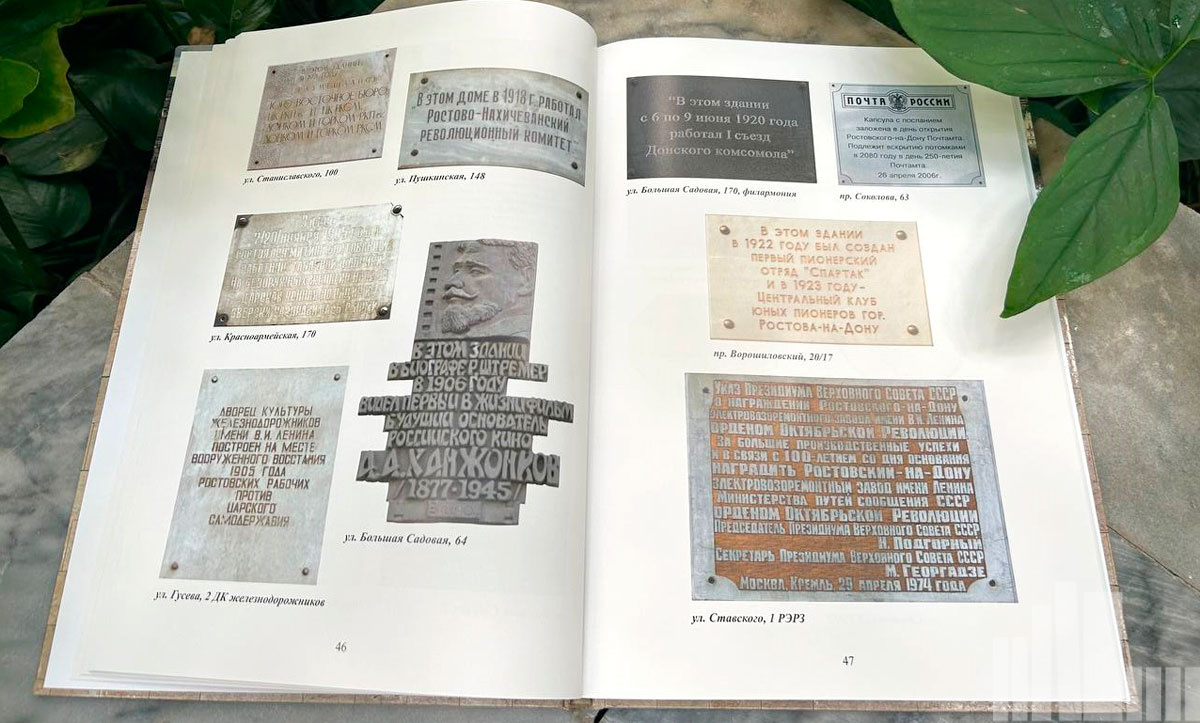 В ЭТОМ ЗДАНИИ
ЮГО-ВОСТОЧНОЕ БЮРО
ДОНКОМ И ГОРКОМ РКСМ
ул. Станиславского, 100
"В ЭТОМ ДОМЕ В 1918 Г. РАБОТАЛ
РОСТОВО-НАХИЧЕВАНСКИЙ
РЕВОЛЮЦИОННЫЙ КОМИТЕТ"
ул. Пушкинская, 148
ул. Красноармейская, 170
В ЭТОМ ЗДАНИИ
В БИОГРАФЕ Р. ШТРЕМЕР
В 1906 ГОДУ
ВИДЕЛ ПЕРВЫЙ В ЖИЗНИ ФИЛЬМ
БУДУЩИЙ ОСНОВАТЕЛЬ
РОССИЙСКОГО КИНО
А.А. ХАНЖОНКОВ
/1877-1945/
ул. Большая Садовая, 64
ДВОРЕЦ КУЛЬТУРЫ
ЖЕЛЕЗНОДОРОЖНИКОВ
ИМЕНИ В.И. ЛЕНИНА
ПОСТРОЕН НА МЕСТЕ
ВООРУЖЕННОГО ВОССТАНИЯ
1905 ГОДА
РОСТОВСКИХ РАБОЧИХ
ПРОТИВ
ЦАРСКОГО
САМОДЕРЖАВИЯ
ул. Гусева, 2 ДК железнодорожников
46
"В этом здании
с 6 по 9 июня 1920 года
работал I съезд
Донского комсомола"
ул. Большая Садовая, 170, филармония
ПОЧТА РОССИИ
Капсула с посланием
заложена в день открытия
Ростовского-на-Дону Почтамта.
Подлежит вскрытию потомками
в 2080 году в день 250-летия
Почтамта.
28 апреля 2006г.
пр. Соколова, 63
В ЭТОМ ЗДАНИИ
В 1922 ГОДУ БЫЛ СОЗДАН
ПЕРВЫЙ ПИОНЕРСКИЙ
ОТРЯД "СПАРТАК"
И В 1923 ГОДУ-
ЦЕНТРАЛЬНЫЙ КЛУБ
ЮНЫХ ПИОНЕРОВ ГОР.
РОСТОВА-НА-ДОНУ
пр. Ворошиловский, 20/17
УКАЗ ПРЕЗИДИУМА ВЕРХОВНОГО СОВЕТА СССР
О НАГРАЖДЕНИИ РОСТОВСКОГО-НА-ДОНУ
ЭЛЕКТРОВОЗОРЕМОНТНОГО ЗАВОДА ИМЕНИ В.И. ЛЕНИНА
ОРДЕНОМ ОКТЯБРЬСКОЙ РЕВОЛЮЦИИ
ЗА БОЛЬШИЕ ПРОИЗВОДСТВЕННЫЕ УСПЕХИ
И В СВЯЗИ С 100-ЛЕТИЕМ СО ДНЯ ОСНОВАНИЯ
НАГРАДИТЬ РОСТОВСКИЙ-НА-ДОНУ
ЭЛЕКТРОВОЗОРЕМОНТНЫЙ ЗАВОД ИМЕНИ ЛЕНИНА
МИНИСТЕРСТВА ПУТЕЙ СООБЩЕНИЯ СССР
ОРДЕНОМ ОКТЯБРЬСКОЙ РЕВОЛЮЦИИ
ПРЕДСЕДАТЕЛЬ ПРЕЗИДИУМА ВЕРХОВНОГО СОВЕТА СССР
Н. ПОДГОРНЫЙ
СЕКРЕТАРЬ ПРЕЗИДИУМА ВЕРХОВНОГО СОВЕТА СССР
М. ГЕОРГАДЗЕ
МОСКВА, КРЕМЛЬ, 29 АПРЕЛЯ 1974 ГОДА
ул. Ставского, 1 РЭРЗ
47